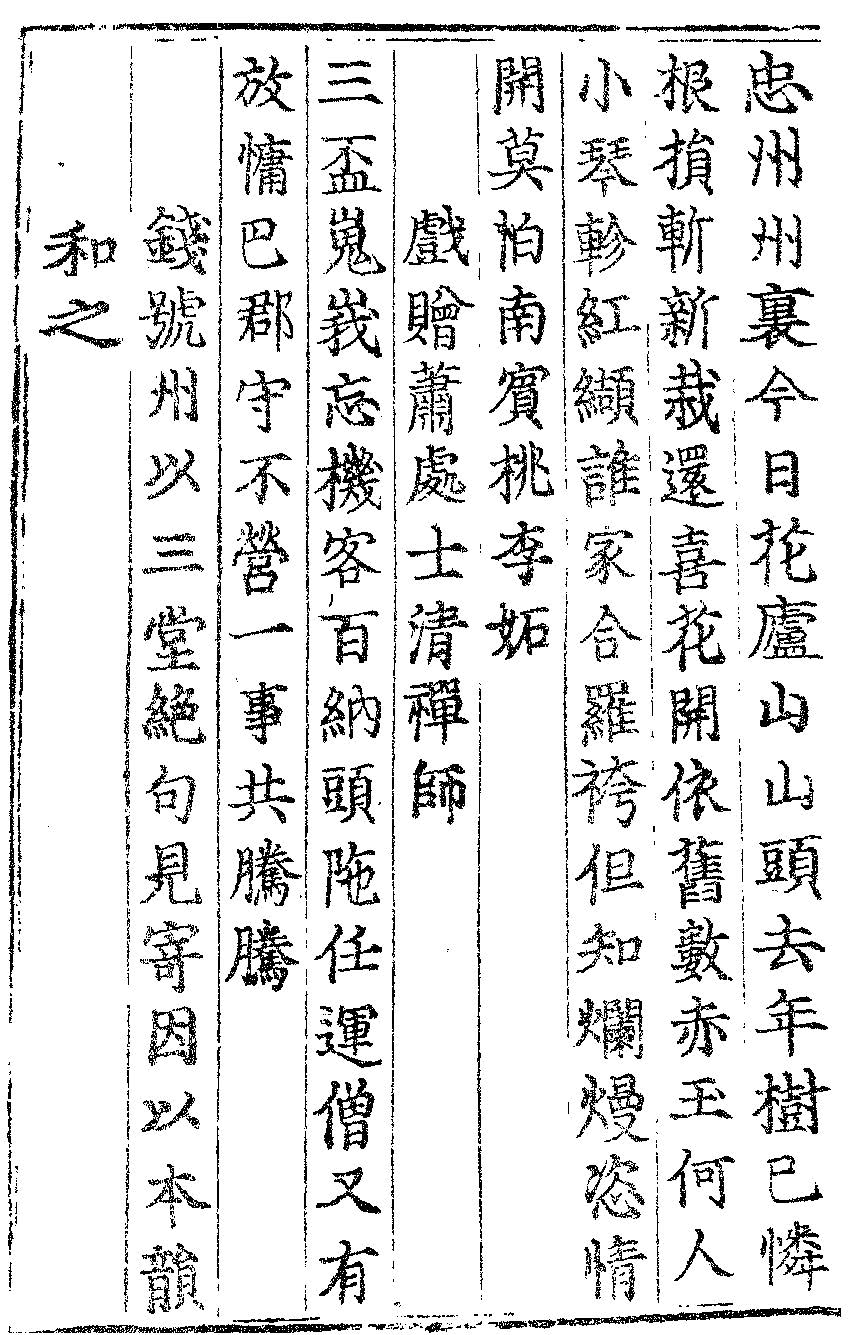 忠州州裏今日花廬山山頭去年樹已憐
根損斬新栽還喜花開依舊數赤玉何人
小琴軫紅纈誰家合羅袴但知爛熳恣情
開莫怕南賓桃李妬
戲贈蕭處士清禪師
三盃嵬峩忘機客百納頭陁任運僧又有
放慵巴郡守不營一事共騰騰
錢號州以三堂絕句見寄因以本韻
和之